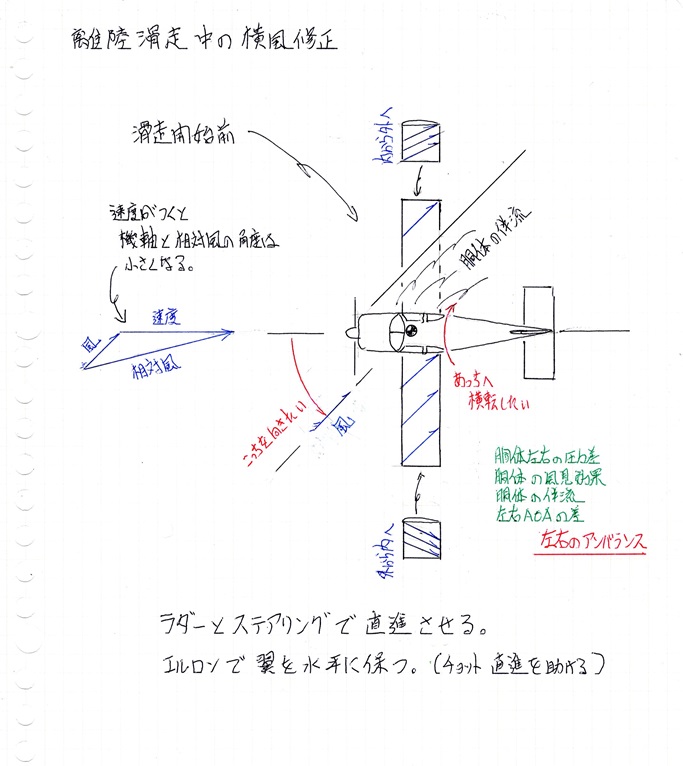 離陸滑走中の横風修正
滑走開始前
内から外へ
速度がつくと
機軸と相対風の角度は
小さくなる。
胴体の伴流
風
速度
相対風
こっちを向きたい
風
あっちへ
横転したい
胴体左右の圧力差
胴体の風見効果
胴体の伴流
左右AOAの差
左右のアンバランス
外から内へ
ラダーとステアリングで直進させる。
エルロンで翼を水平に保つ。(チョット直進を助ける)